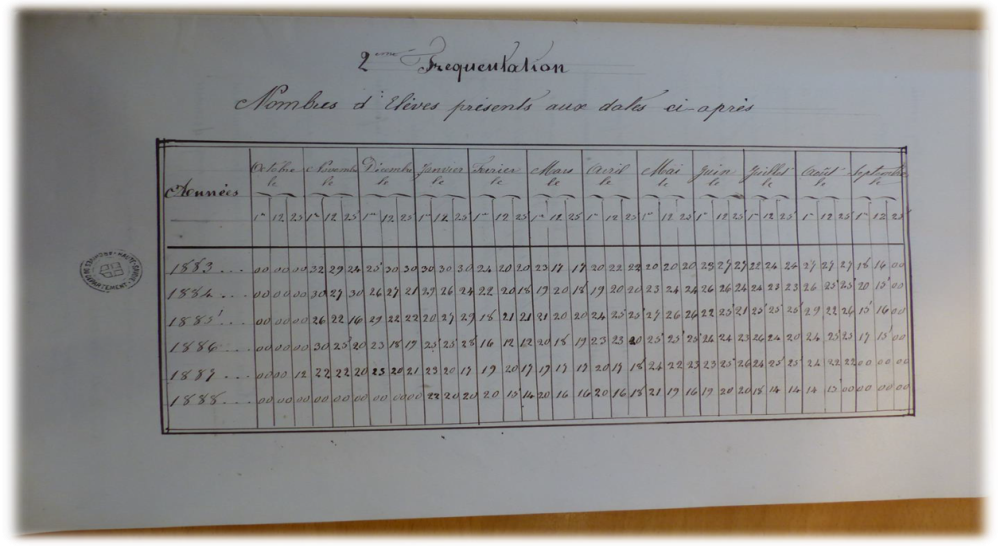 2ème Fréquentation
Nombres d'Elèves présents aux dates ci-après
Années Octobre Novembre Décembre Janvier Février Mars Avril Mai Juin Juillet Août Septembre
le le le le le le le le le le le le
1er 12 25 1er 12 25 1er 12 25 1er 12 25 1er 12 25 1er 12 25 1er 12 25 1er 12 25 1er 12 25 1er 12 25 1er 12 25 1er 12 25
1883 00 00 00 32 29 24 25 30 30 30 30 30 24 20 20 23 17 17 20 22 22 20 20 20 28 27 27 22 24 24 27 27 27 18 16 00
1884 00 00 00 30 27 30 26 27 21 29 26 24 22 20 18 19 20 18 19 20 20 23 24 24 26 26 24 24 23 23 26 25 25 20 15 00
1885 00 00 00 26 22 16 29 22 22 20 27 29 18 21 21 21 20 20 24 25 25 27 26 26 22 25 21 25 25 25 29 22 26 15 16 00
1886 00 00 00 30 25 20 23 18 19 25 25 28 16 12 12 20 18 19 23 23 20 25 25 25 26 24 23 26 24 20 24 25 23 17 15 00
1887 00 00 12 22 22 20 23 20 21 23 20 17 19 20 17 19 17 17 20 17 18 24 22 23 23 25 26 24 25 25 24 22 22 00 00 00
1888 00 00 00 00 00 00 00 00 00 22 20 20 20 15 14 20 16 16 20 16 18 21 19 16 19 20 20 18 14 14 14 13 00 00 00 00